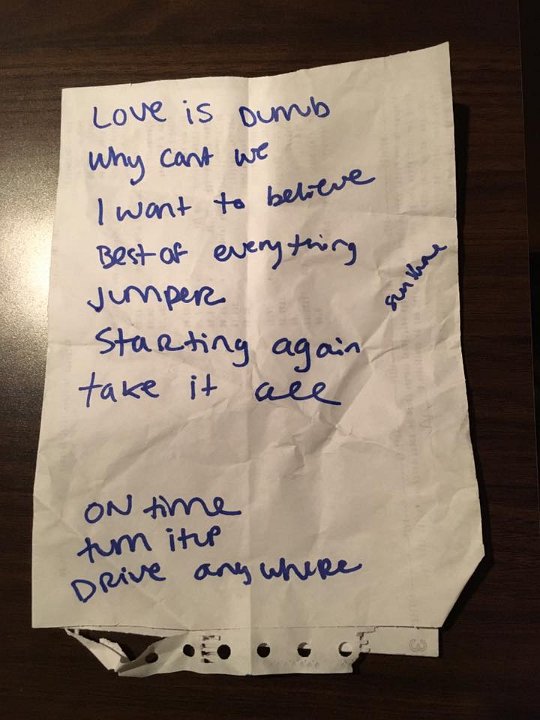 Love is Dumb
Why cant we
I want to believe
Best of everything
Jumper
sunshine
Starting again
take it all
ON time
turn it up
Drive anywhere